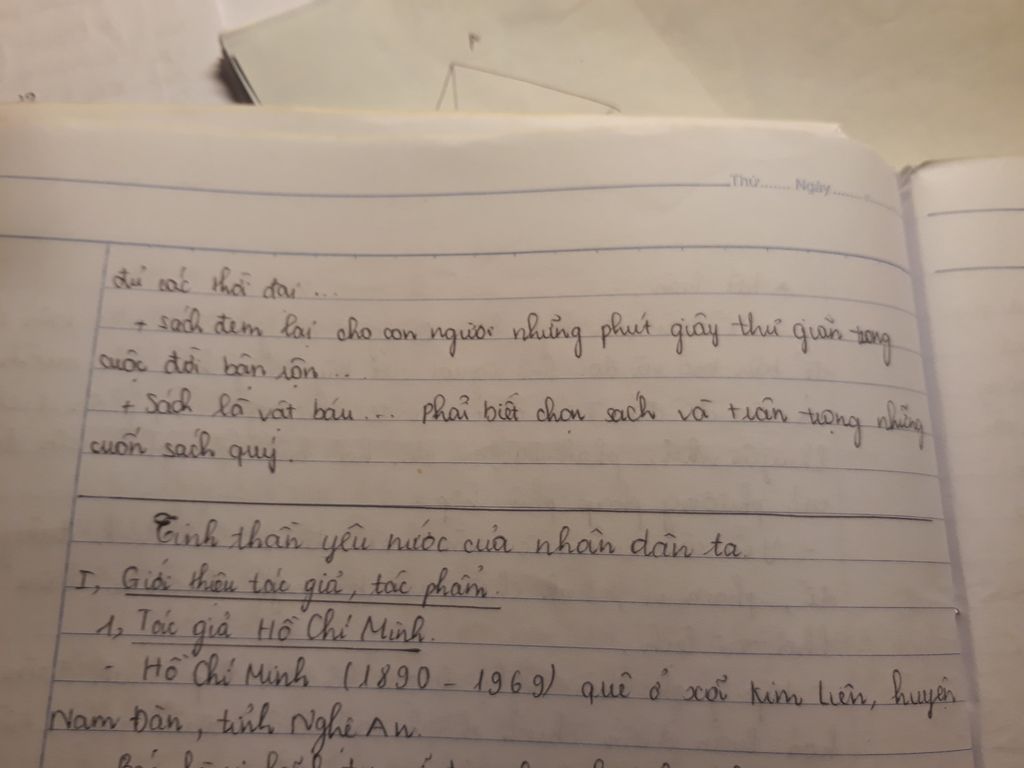 Thứ....... Ngày.......
đủ các thời đại ...
+ sách đem lại cho con người những phút giây thư giãn trong
cuộc đời bận rộn ...
+ Sách là vật báu ... phải biết chọn sách và trân trọng những
cuốn sách quý.
Tinh thần yêu nước của nhân dân ta
I, Giới thiệu tác giả, tác phẩm.
1, Tác giả Hồ Chí Minh.
- Hồ Chí Minh (1890 - 1969) quê ở xã Kim Liên, huyện
Nam Đàn, tỉnh Nghệ An.